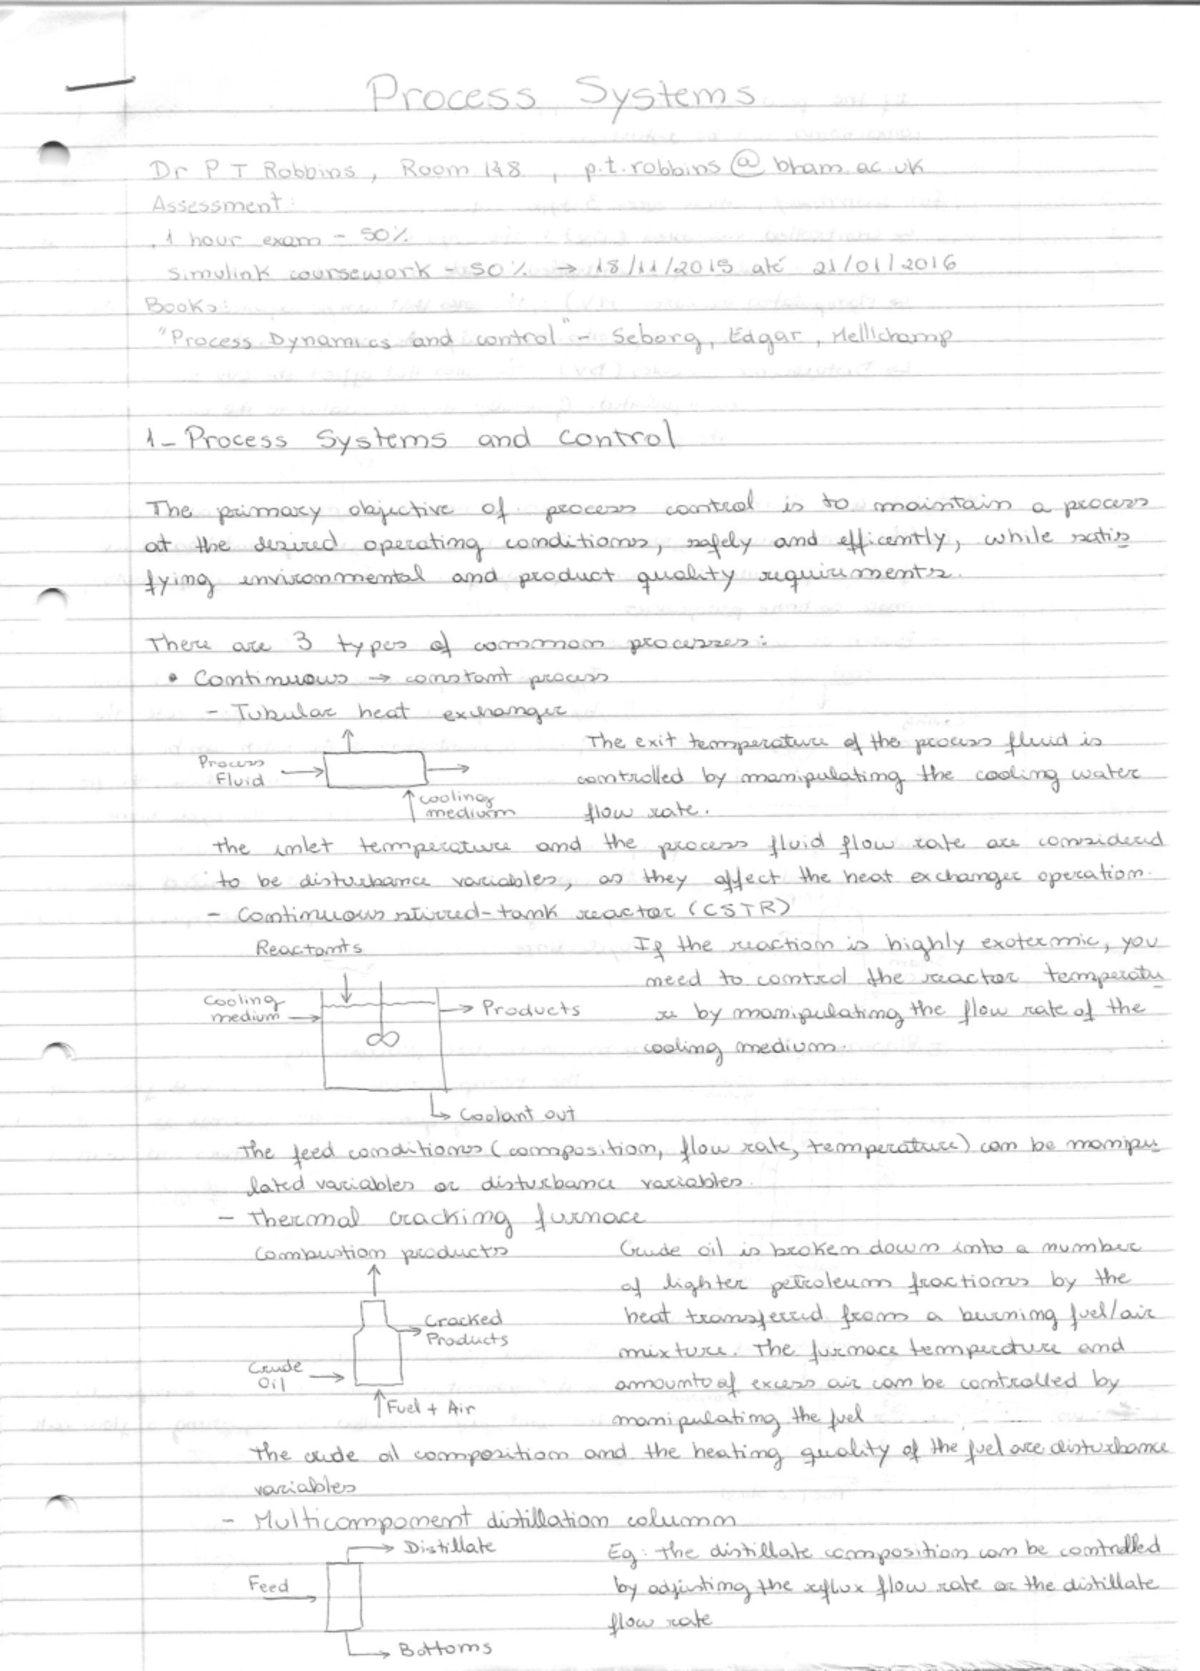 Process Systems
Dr P T Robbins, Room 148, p.t.robbins@bham.ac.uk
Assessment:
. 1 hour exam - 50%
simulink coursework - 50% → 18/11/2015 até 21/01/2016
Books:
"Process Dynamics and control" - Seborg, Edgar, Mellichamp
1- Process Systems and control
The primary objective of process control is to maintain a process
at the desired operating conditions, safely and efficently, while satis
fying environmental and product quality requirements.
There are 3 types of common processes:
• Continuous → constant process
- Tubular heat exchanger
Process
Fluid
cooling
medium
The exit temperature of the process fluid is
controlled by manipulating the cooling water
flow rate.
the inlet temperature and the process fluid flow rate are considered
to be disturbance variables, as they affect the heat exchanger operation.
- Continuous stirred-tank reactor (CSTR)
Reactants
Cooling
medium
Products
Coolant out
If the reaction is highly exotermic, you
need to control the reactor temperatu
re by manipulating the flow rate of the
cooling medium.
The feed conditions (composition, flow rate, temperature) can be manipu
lated variables or disturbance variables.
- Thermal cracking furnace
Combustion products
Cracked
Products
Crude
Oil
Fuel + Air
Crude oil is broken down into a number
of lighter petroleum fractions by the
heat transferred from a burning fuel/air
mixture. The furnace temperature and
amount of excess air can be controlled by
manipulating the fuel
The crude oil composition and the heating quality of the fuel are disturbance
variables
- Multicomponent distillation column
Distillate
Feed
Bottoms
Eg: the distillate composition can be controlled
by adjusting the reflux flow rate or the distillate
flow rate